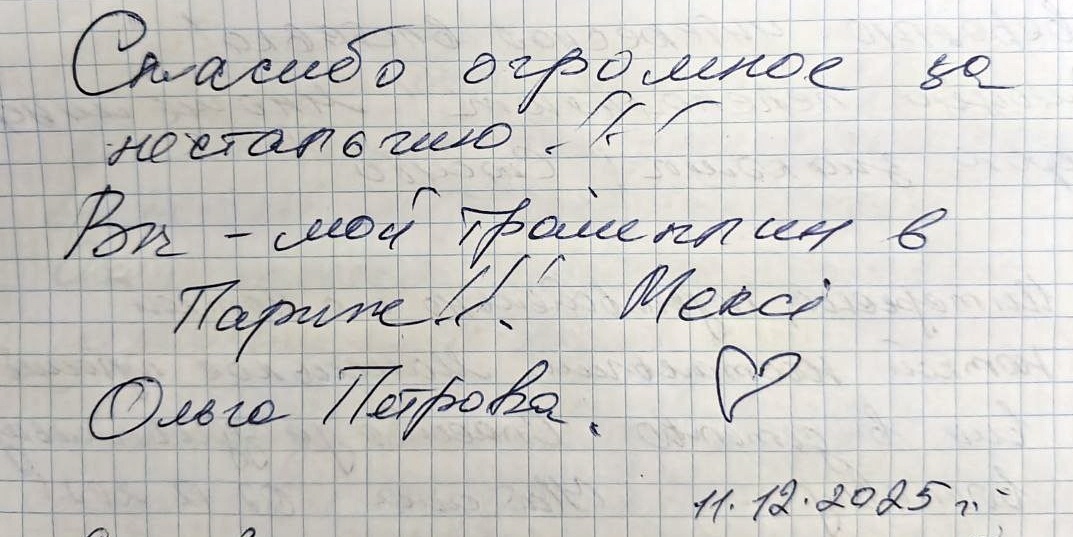 Спасибо огромное за
ностальгию!!!
Вы - мой трамплин в
Париж!!! Мекси
Ольга Петрова.
11.12.2025 г.